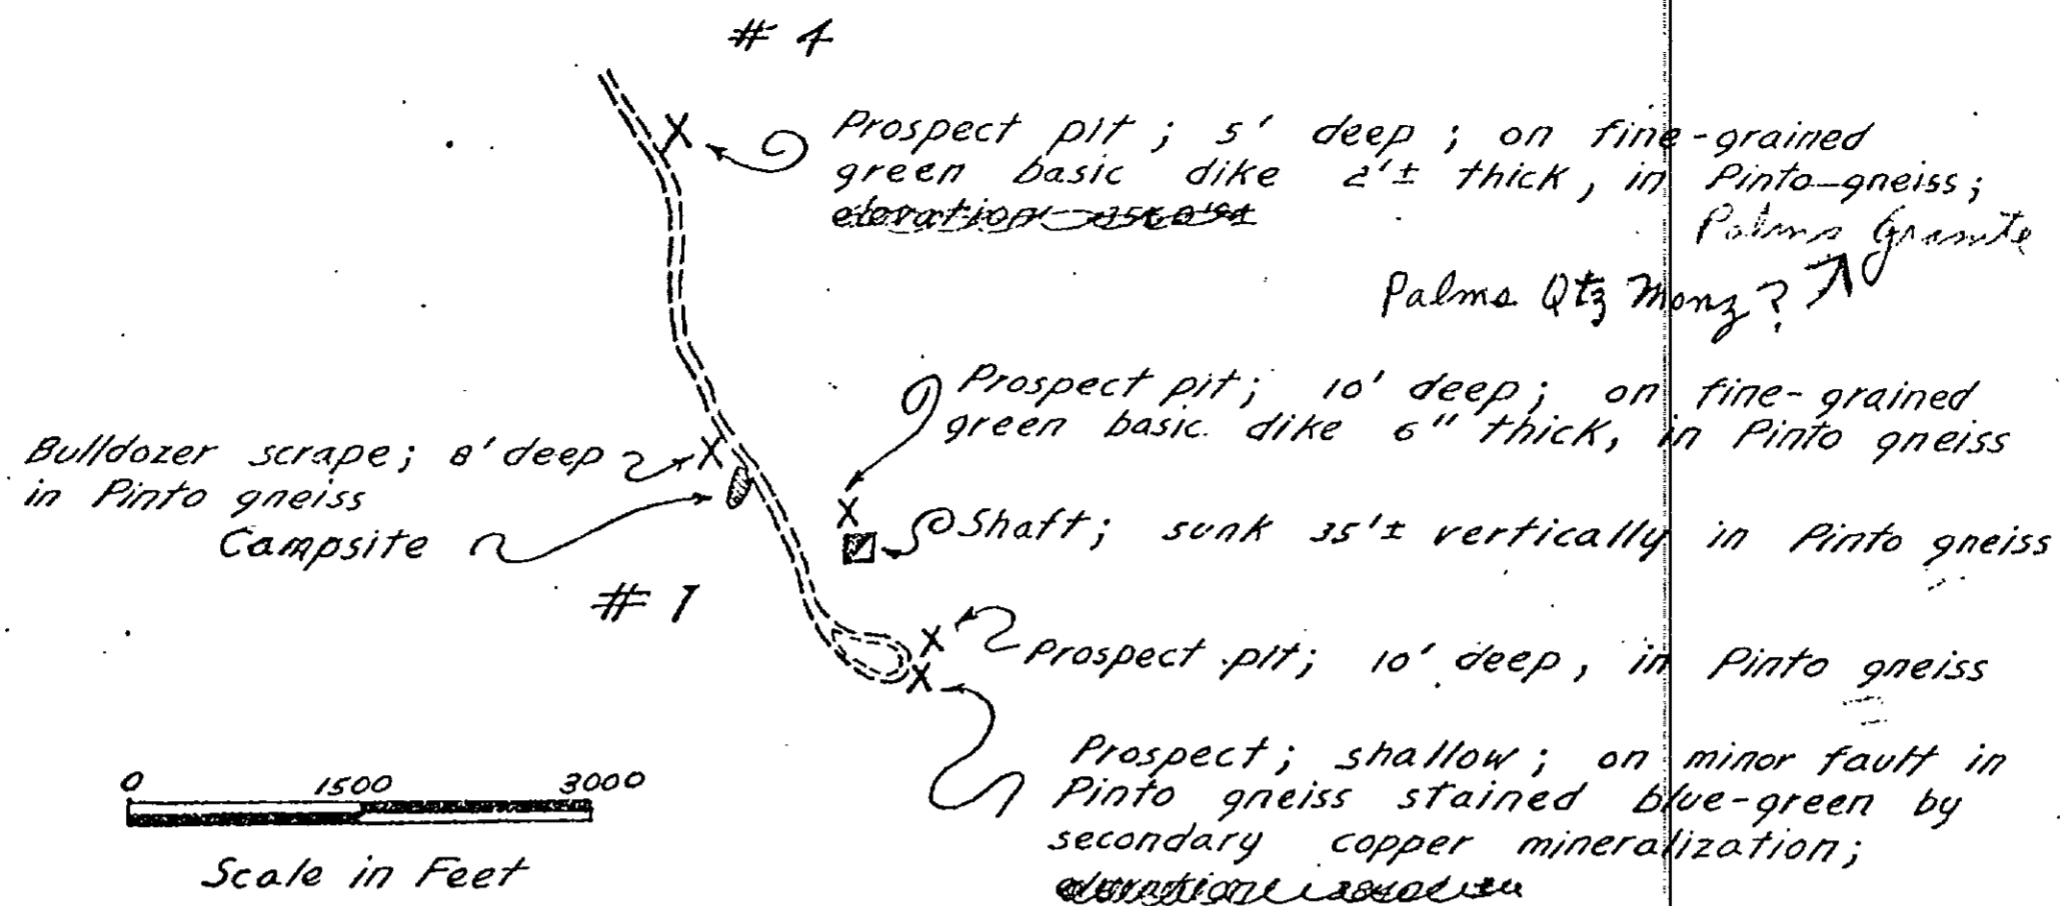 # 4
Prospect pit; 5' deep; on fine-grained
green basic dike 2'± thick, in Pinto gneiss;
elevation
Palms Granite
Palms Qtz Monz?
Prospect pit; 10' deep; on fine-grained
green basic dike 6" thick, in Pinto gneiss
Bulldozer scrape; 8' deep
in Pinto gneiss
Campsite
Shaft; sunk 35'± vertically in Pinto gneiss
# 1
Prospect pit; 10' deep, in Pinto gneiss
Prospect; shallow; on minor fault in
Pinto gneiss stained blue-green by
secondary copper mineralization;
elevation
0 1500 3000
Scale in Feet